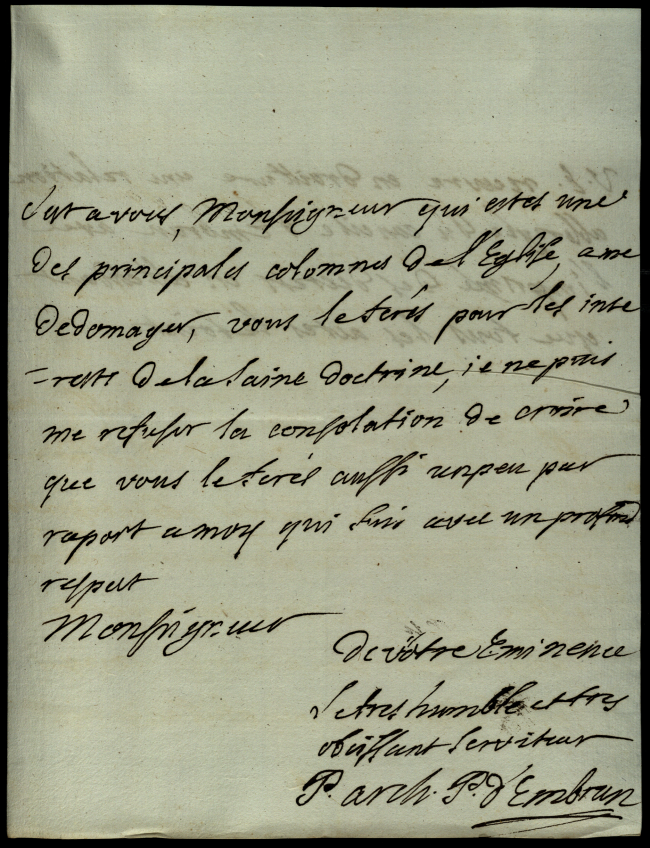 c'est a vous, Monseigneur qui estes une
des principales colomnes de l'Eglise, a me
dedomager, vous le ferés pour les inte
=rests de la saine doctrine, je ne puis
me refuser la consolation de croire
que vous le ferés aussi un peu par
raport a moy qui suis avec un profond
respect
Monseigneur
De votre Eminence
le tres humble et tres
obeissant serviteur
P. arch. P. d'Embrun